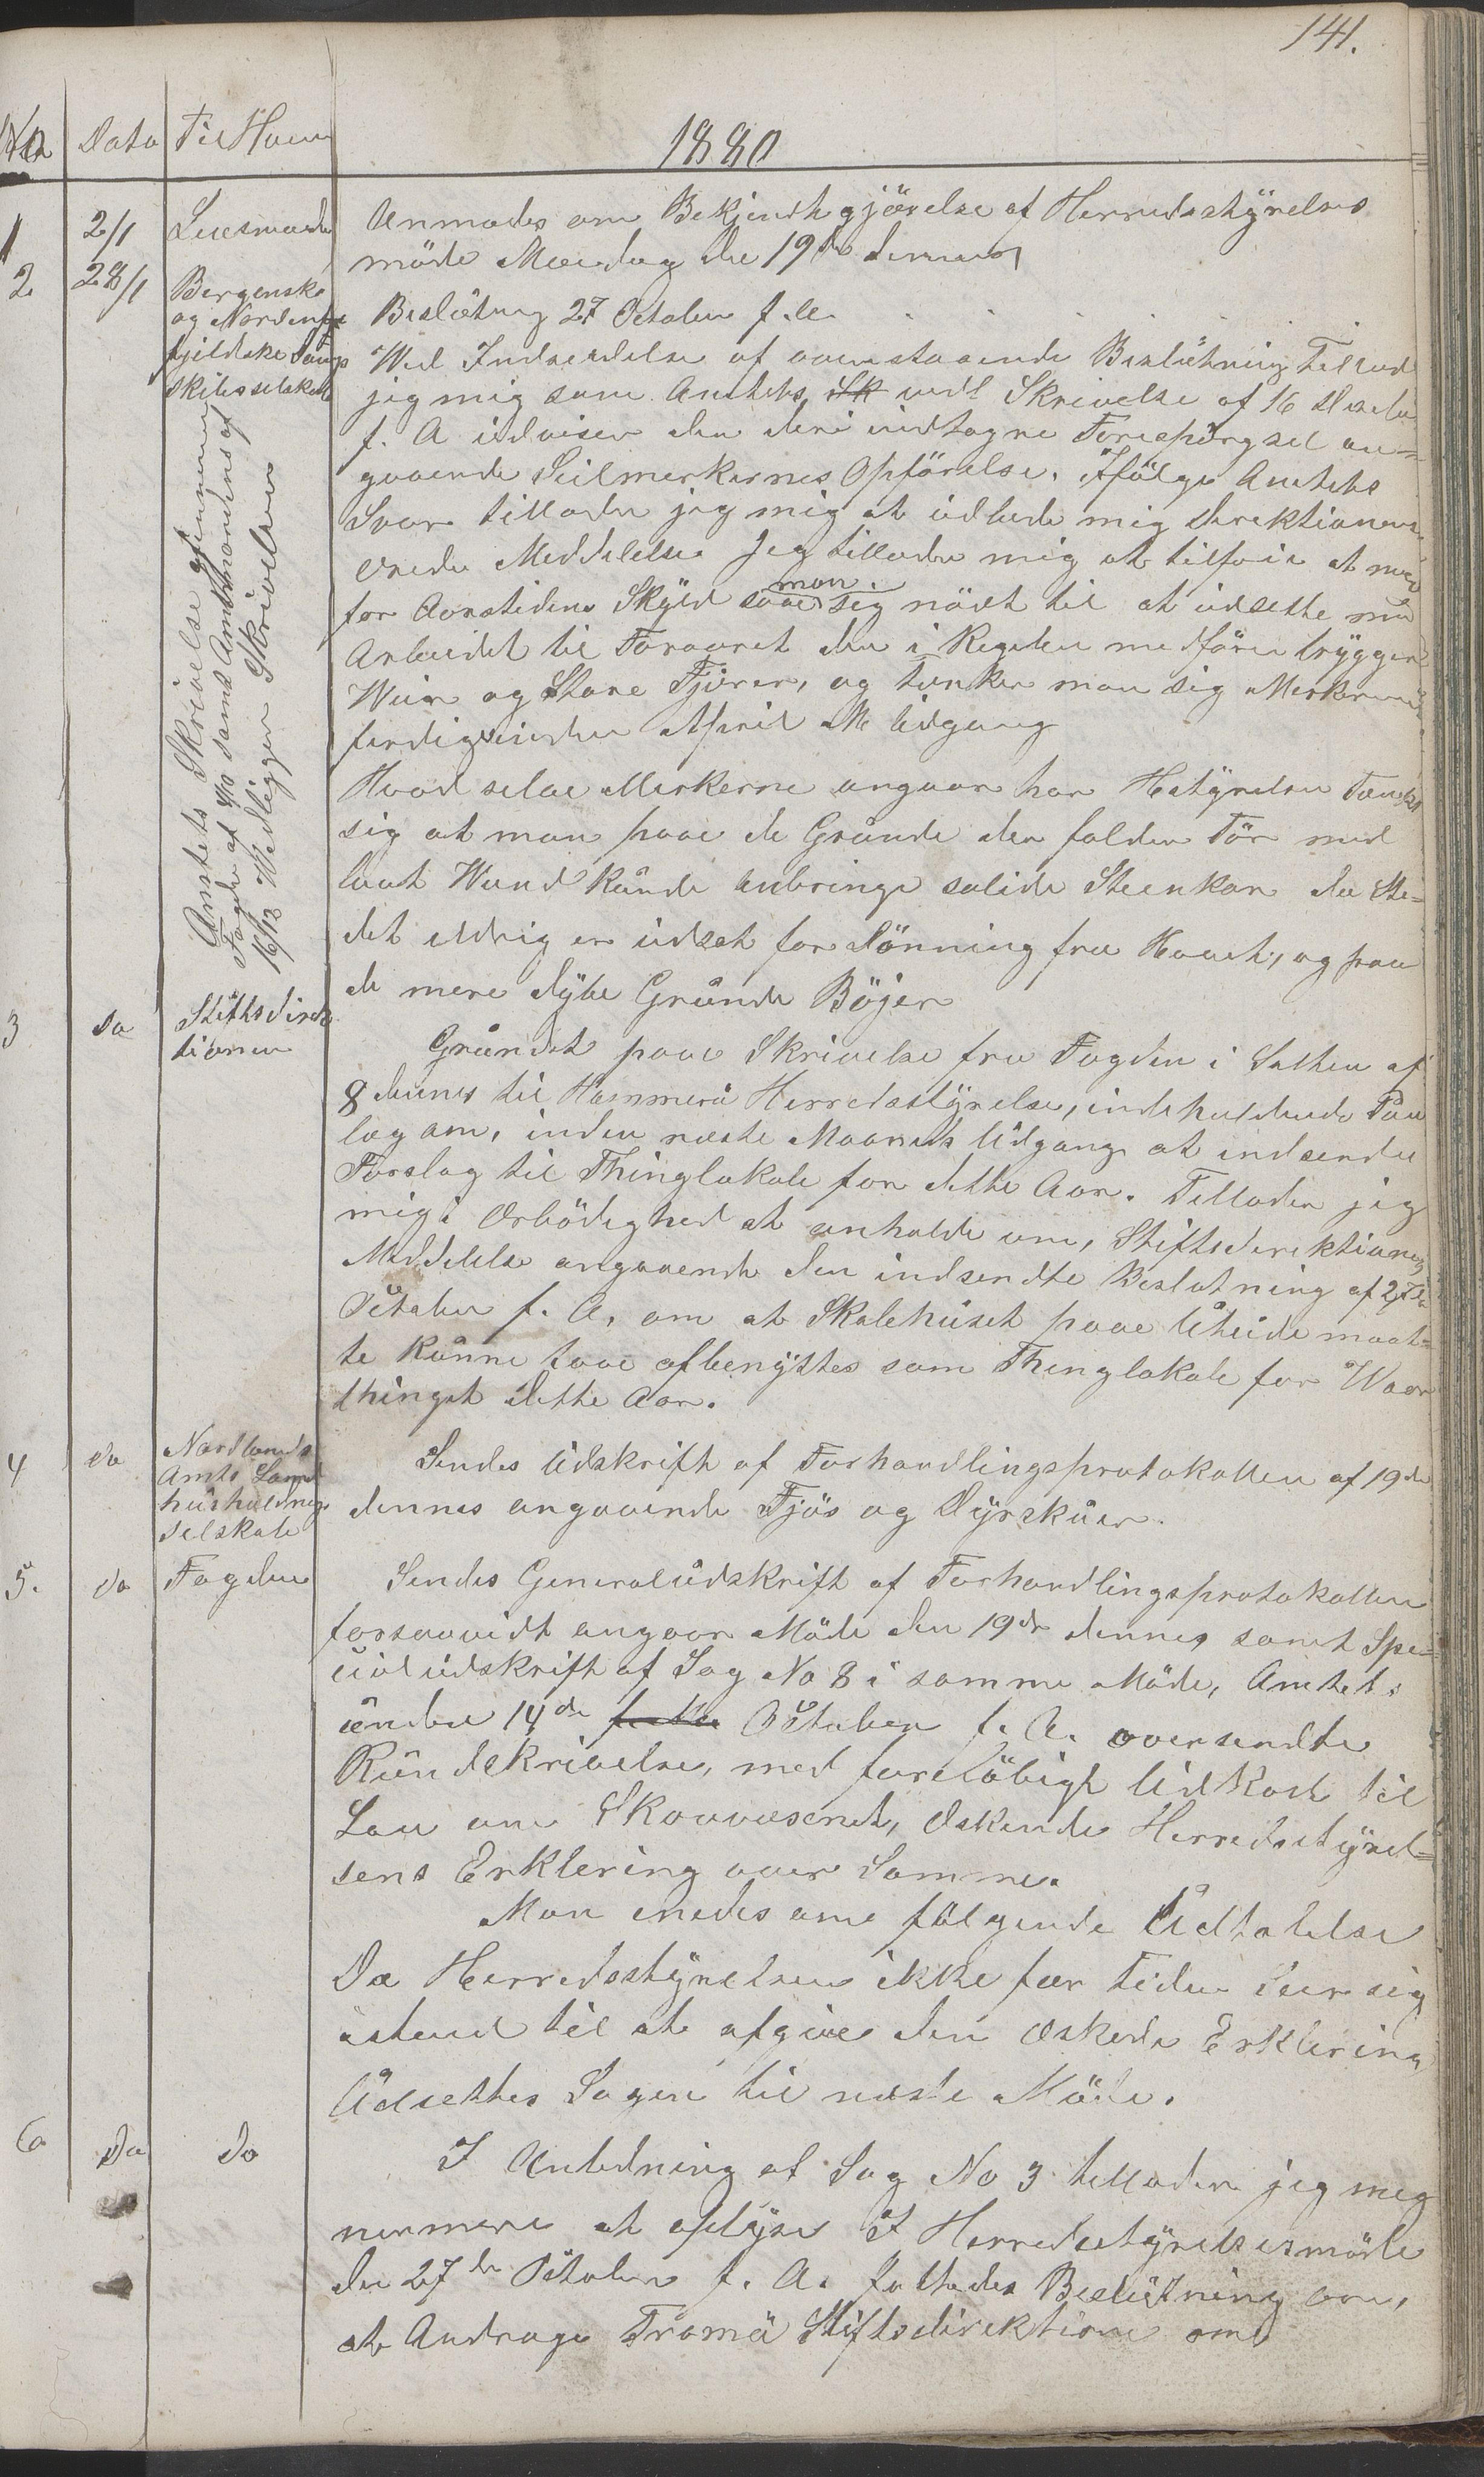 141.
No Dato Til Hvem
1880
1 2/1 Lensmanden Anmodes om Bekjendtgjörelse af Herredsstÿrelses
möde Mandag den 19de dennes
2. 28/1 Bergenske
og Nordenfje
fjeldske Damp
skibsselskab
Amtets Skrivelse gjennem
Fogden af samt Amtmandens af
16/12 Vedligger Skrivelsen
Beslutning 27 October f. A.
Ved Indsendelse af ovenstaaende Beslutning Tillod
jeg mig som Amtets Sk vedl Skrivelse af 16 Decbr
f. A udviser den deri indtagne Forespörgsel an-
gaaende Seilmerkernes Opförelse. Ifölge Amtets
Svar tillader jeg mig at udbede mig Direktionens
ærede Meddelelse. Jeg tillader mig at tilföie at man
for Aarstidens Skÿld saae man sig nödt til at udsette med
Arbeidet til Foraaret den i Regelen medförer trÿggere
Veir og Store Fjærer, og tenker man sig Merkerne
ferdig inden April M Udgang
Hvad selve Merkerne angaar har Hstÿrelsen Tænkt
sig at man paae de Grunde der falder Tör med
lavt Vand kunde anbringe solide Steenkar da Ste-
det aldrig er udsat for Dönning fra Havet, og paa
de mere dÿbe Grunde Böjer
3 do Stiftsdirek
tionen
Grundet paae Skrivelse fra Fogden i Salten af
8 dennes til Hammerö Herredsstÿrelse, indeholdende Paa
læg om, inden næste Maaneds Udgang at indsende
Forslag til Thinglokale for dette Aar. Tillader jeg
mig i Ærbödighed at anholde om, Stiftsdirektionens
Meddelelse angaaende den indsendte Beslutning af 27de
October f. A. om at Skolehuset paae Uteide maat-
te kunne faae afbenÿttes som Thinglokale for Vaar
thinget dette Aar.
4 do Nordlands
Amts Land
husholdnings
selskab
Sendes Udskrift af Forhandlingsprotokollen af 19de
dennes angaaende Fjös og Dÿrskuer.
5. do Fogden Sendes Generaludskrift af Forhandlingsprotokollen
forsaavidt angaar Möde den 19de dennes samt Spe-
cialudskrift af Sag No 8 i samme Möde, Amtets
under 14de October f. A. oversendte
Rundskrivelse, med foreløbigt Udkast til
Lov om Skovvæsenet, Æskende Herredsstÿrel-
sens Erklering over Samme.
Man enedes om fölgende Udtalelse
Da Herredsstÿrelsen ikke for Tiden seer sig
istand til at afgive den Æskede Erklering
Udsettes Sagen til næste Möde.
6 Do Do I Anledning af Sag No 3 tillader jeg mig
nermere at oplÿse I Herredsstÿrelsesmöde
den 27de October f. A. fattedes Beslutning om,
at Andrage Tromsö Stiftsdirektion om